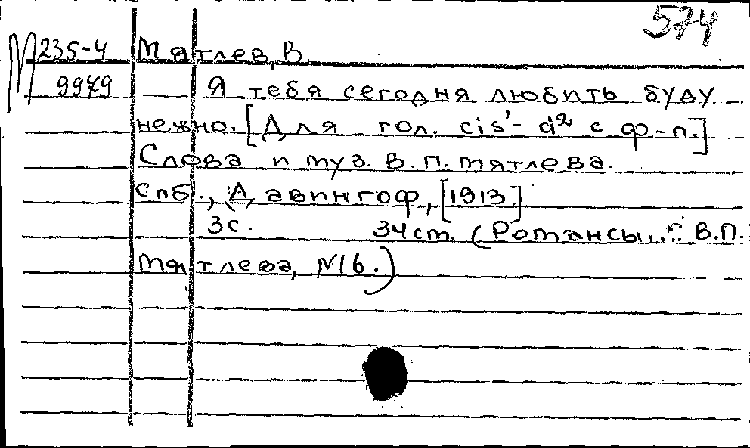 574
М 235-4 Мятлев, В.
9979 Я тебя сегодня любить буду
нежно. [Для гол. cis¹- d² с ф-п.]
Слова и муз. В.П. Мятлева.
Спб., Давингоф, [1913]
3с. 34см. (Романсы... В.П.
Мятлева, №16.)